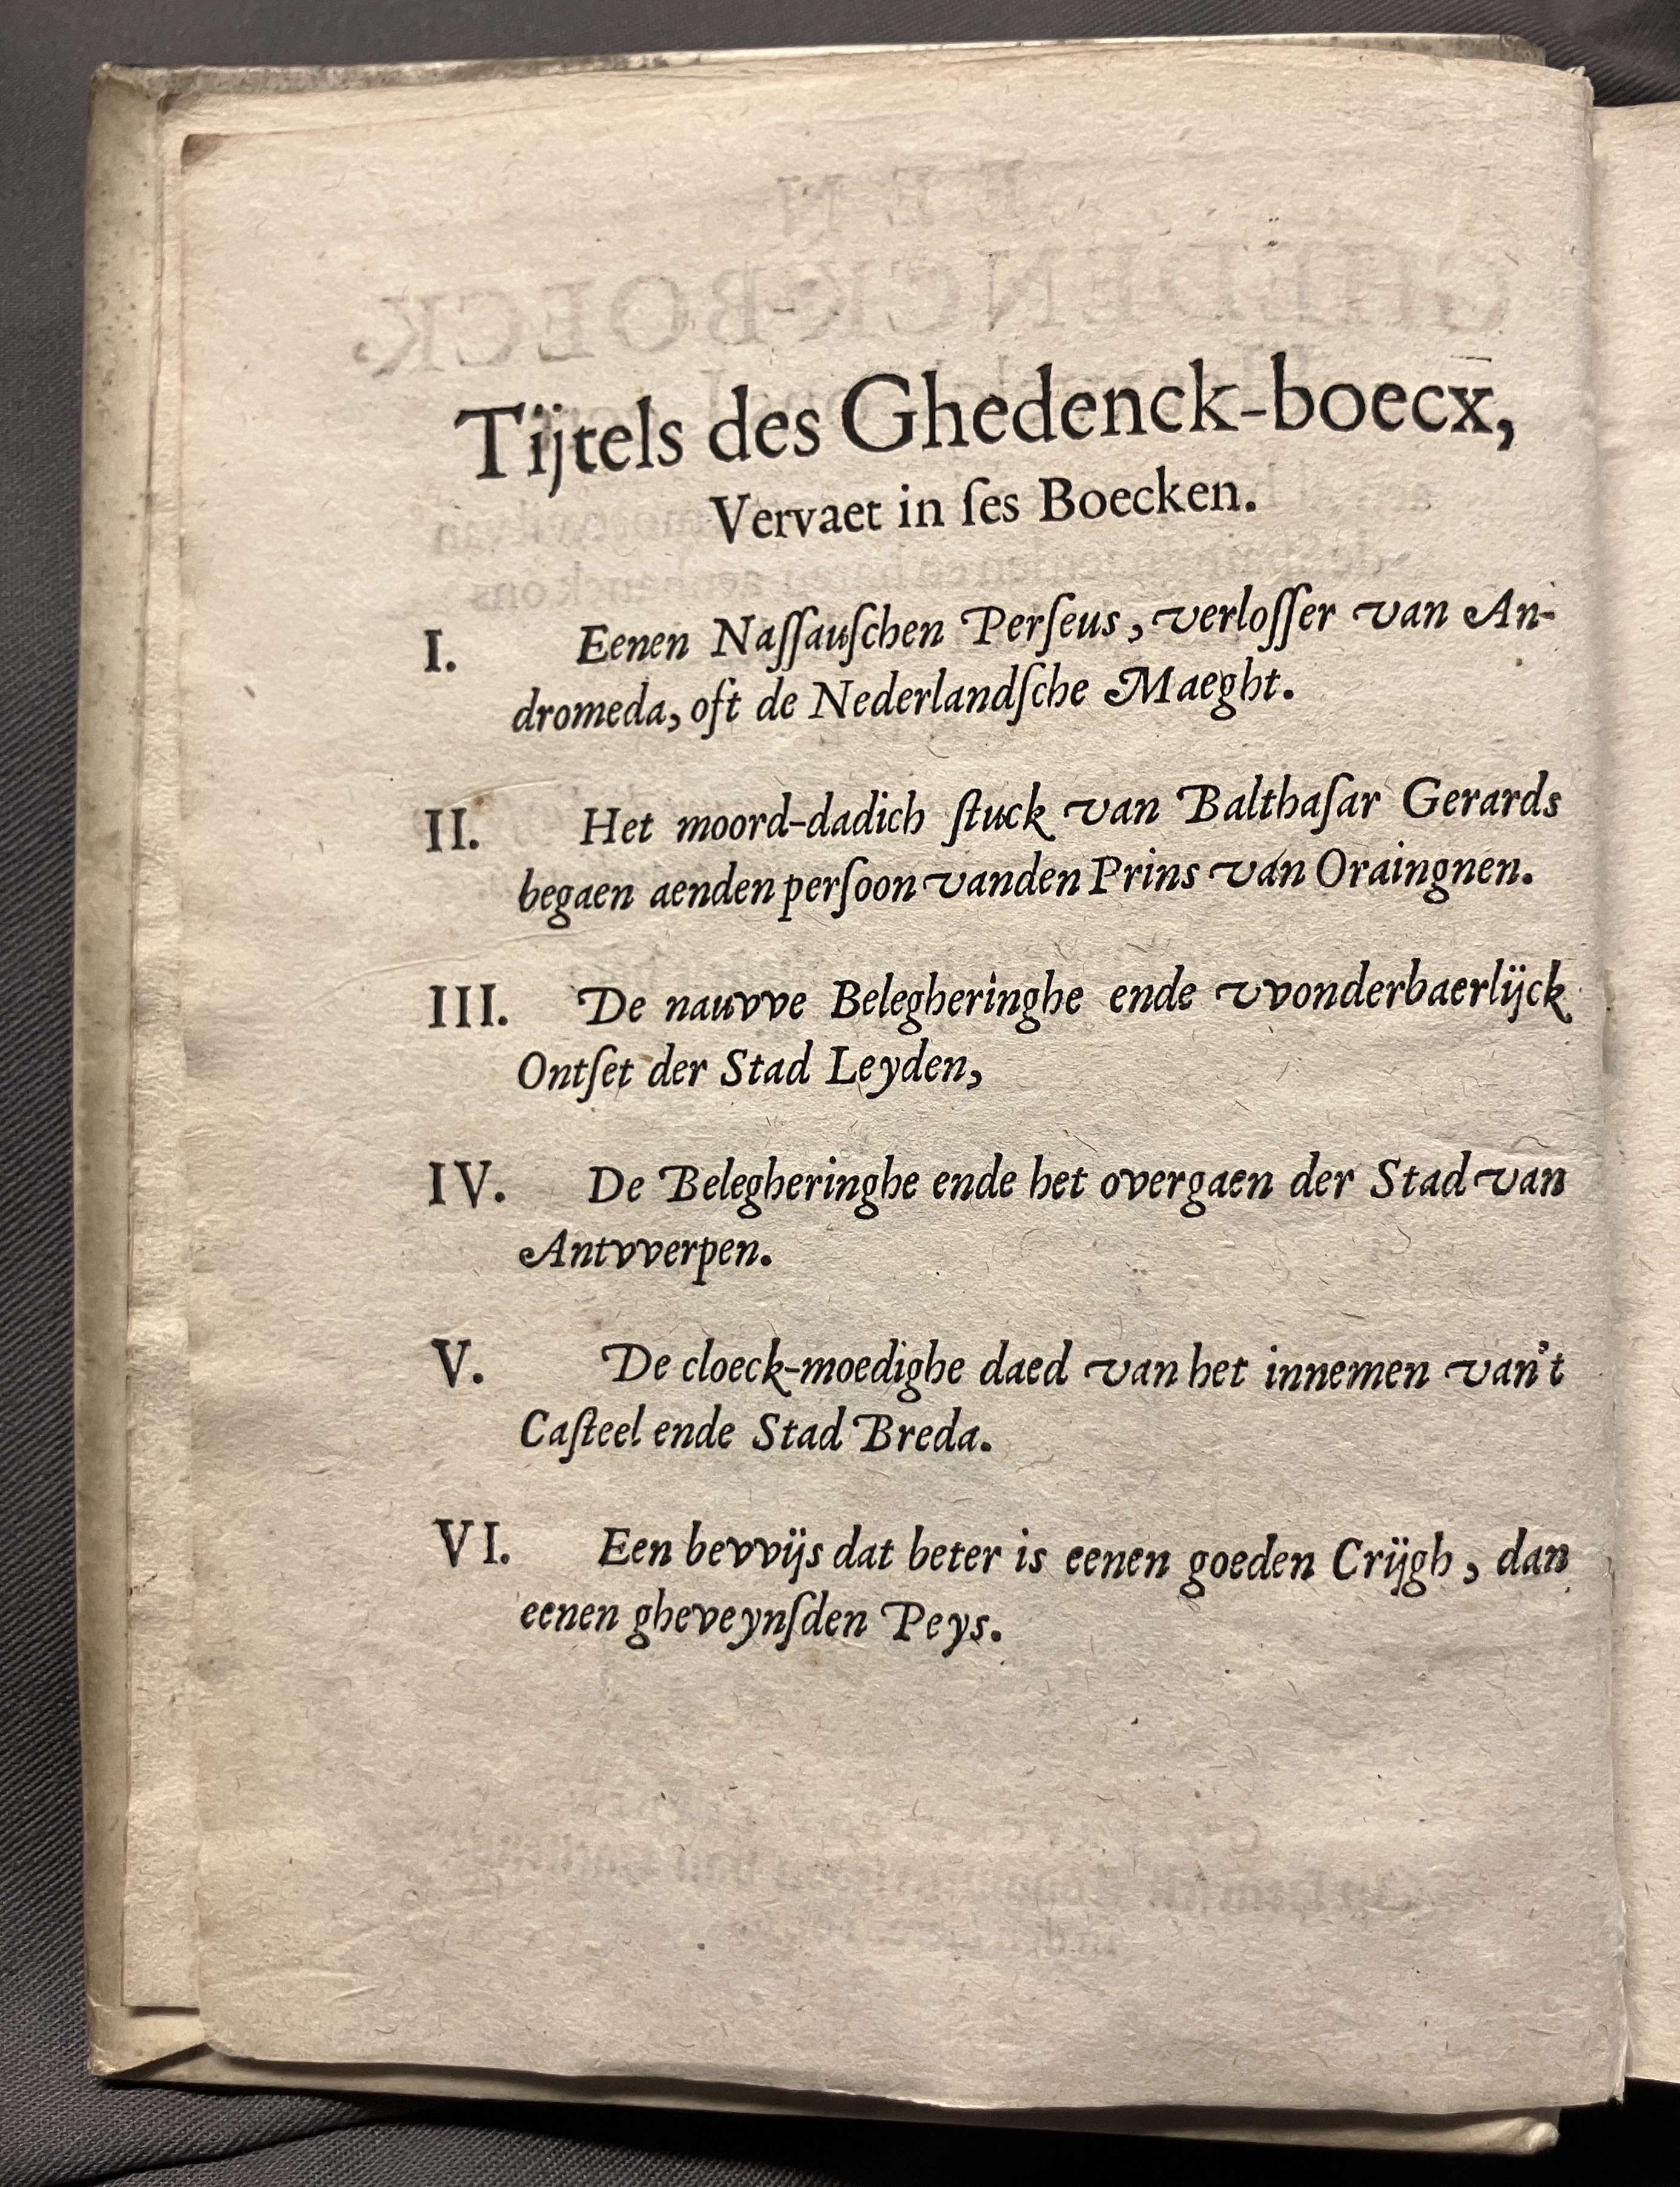 Tijtels des Ghedenck-boecx,
Vervaet in ſes Boecken.
I. Eenen Naſſauſchen Perſeus, verloſſer van An-
dromeda, oft de Nederlandſche Maeght.
II. Het moord-dadich ſtuck van Balthaſar Gerards
begaen aenden perſoon vanden Prins van Oraingnen.
III. De nauvve Belegheringhe ende vvonderbaerlijck
Ontſet der Stad Leyden,
IV. De Belegheringhe ende het overgaen der Stad van
Antvverpen.
V. De cloeck-moedighe daed van het innemen van't
Caſteel ende Stad Breda.
VI. Een bevvijs dat beter is eenen goeden Crijgh, dan
eenen gheveynſden Peys.